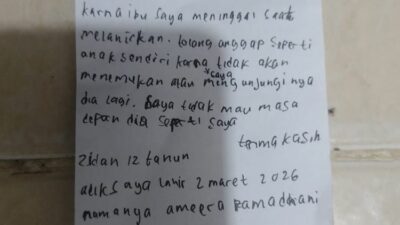 karna ibu saya meninggal saat
melahirkan. tolong anggap seperti
anak sendiri karna tidak akan
menemukan atau *saya mengunjungi nya
dia lagi. Saya tidak mau masa
depan dia seperti saya
terma kasih
Zidan 12 tahun
adik saya lahir 2 maret 2026
namanya ameera ramadhani